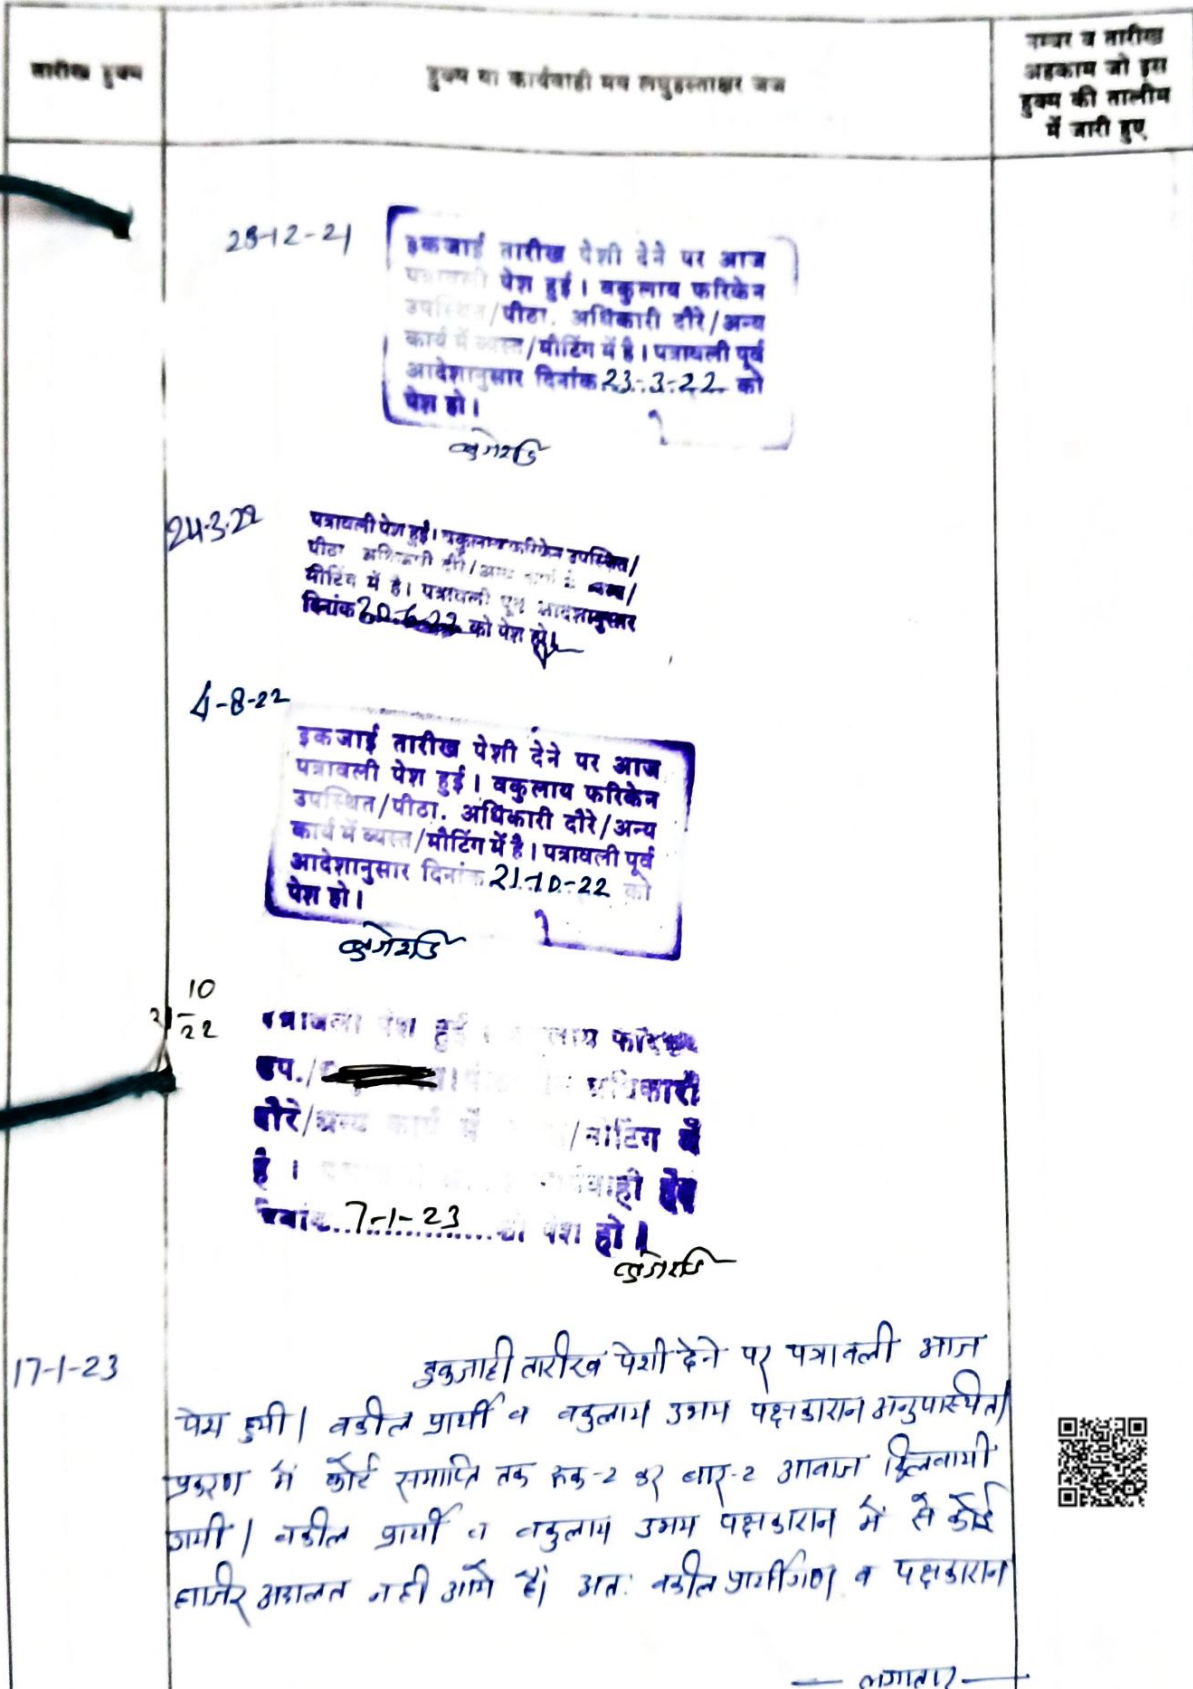 तारीख हुक्म
हुक्म या कार्यवाही मय लघुहस्ताक्षर जज
नम्बर व तारीख
अहकाम जो इस
हुक्म की तालीम
में जारी हुए
23-12-21
इकजाई तारीख पेशी देने पर आज
पत्रावली पेश हुई। वकुलाय फरिकेन
उपस्थित/पीठा. अधिकारी दौरे/अन्य
कार्य में व्यस्त/मीटिंग में है। पत्रावली पूर्व
आदेशानुसार दिनांक 23-3-22 को
पेश हो।
24.3.22
पत्रावली पेश हुई। वकुलाय फरिकेन उपस्थित/
पीठा अधिकारी दौरे/अन्य कार्य में व्यस्त/
मीटिंग में है। पत्रावली पूर्व आदेशानुसार
दिनांक 30-6-22 को पेश हो।
4-8-22
इकजाई तारीख पेशी देने पर आज
पत्रावली पेश हुई। वकुलाय फरिकेन
उपस्थित/पीठा. अधिकारी दौरे/अन्य
कार्य में व्यस्त/मीटिंग में है। पत्रावली पूर्व
आदेशानुसार दिनांक 21-10-22 को
पेश हो।
21 10/22
पत्रावली पेश हुई। वकुलाय फरिकेन
उप./ अधिकारी
दौरे/अन्य कार्य में /मीटिंग में
है। कार्यवाही हेतु
दिनांक 7-1-23 को पेश हो।
17-1-23
इकजाही तारीख पेशी देने पर पत्रावली आज
पेश हुयी। वकील प्रार्थी व वकुलाय उभय पक्षकारान अनुपस्थित।
प्रकरण में कोर्ट समाप्ति तक रूक-2 कर बार-2 आवाज दिलवायी
गयी। वकील प्रार्थी व वकुलाय उभय पक्षकारान में से कोई
हाजीर अदालत नही आये है। अतः वकील प्रार्थीगण व पक्षकारान
— लगातार —